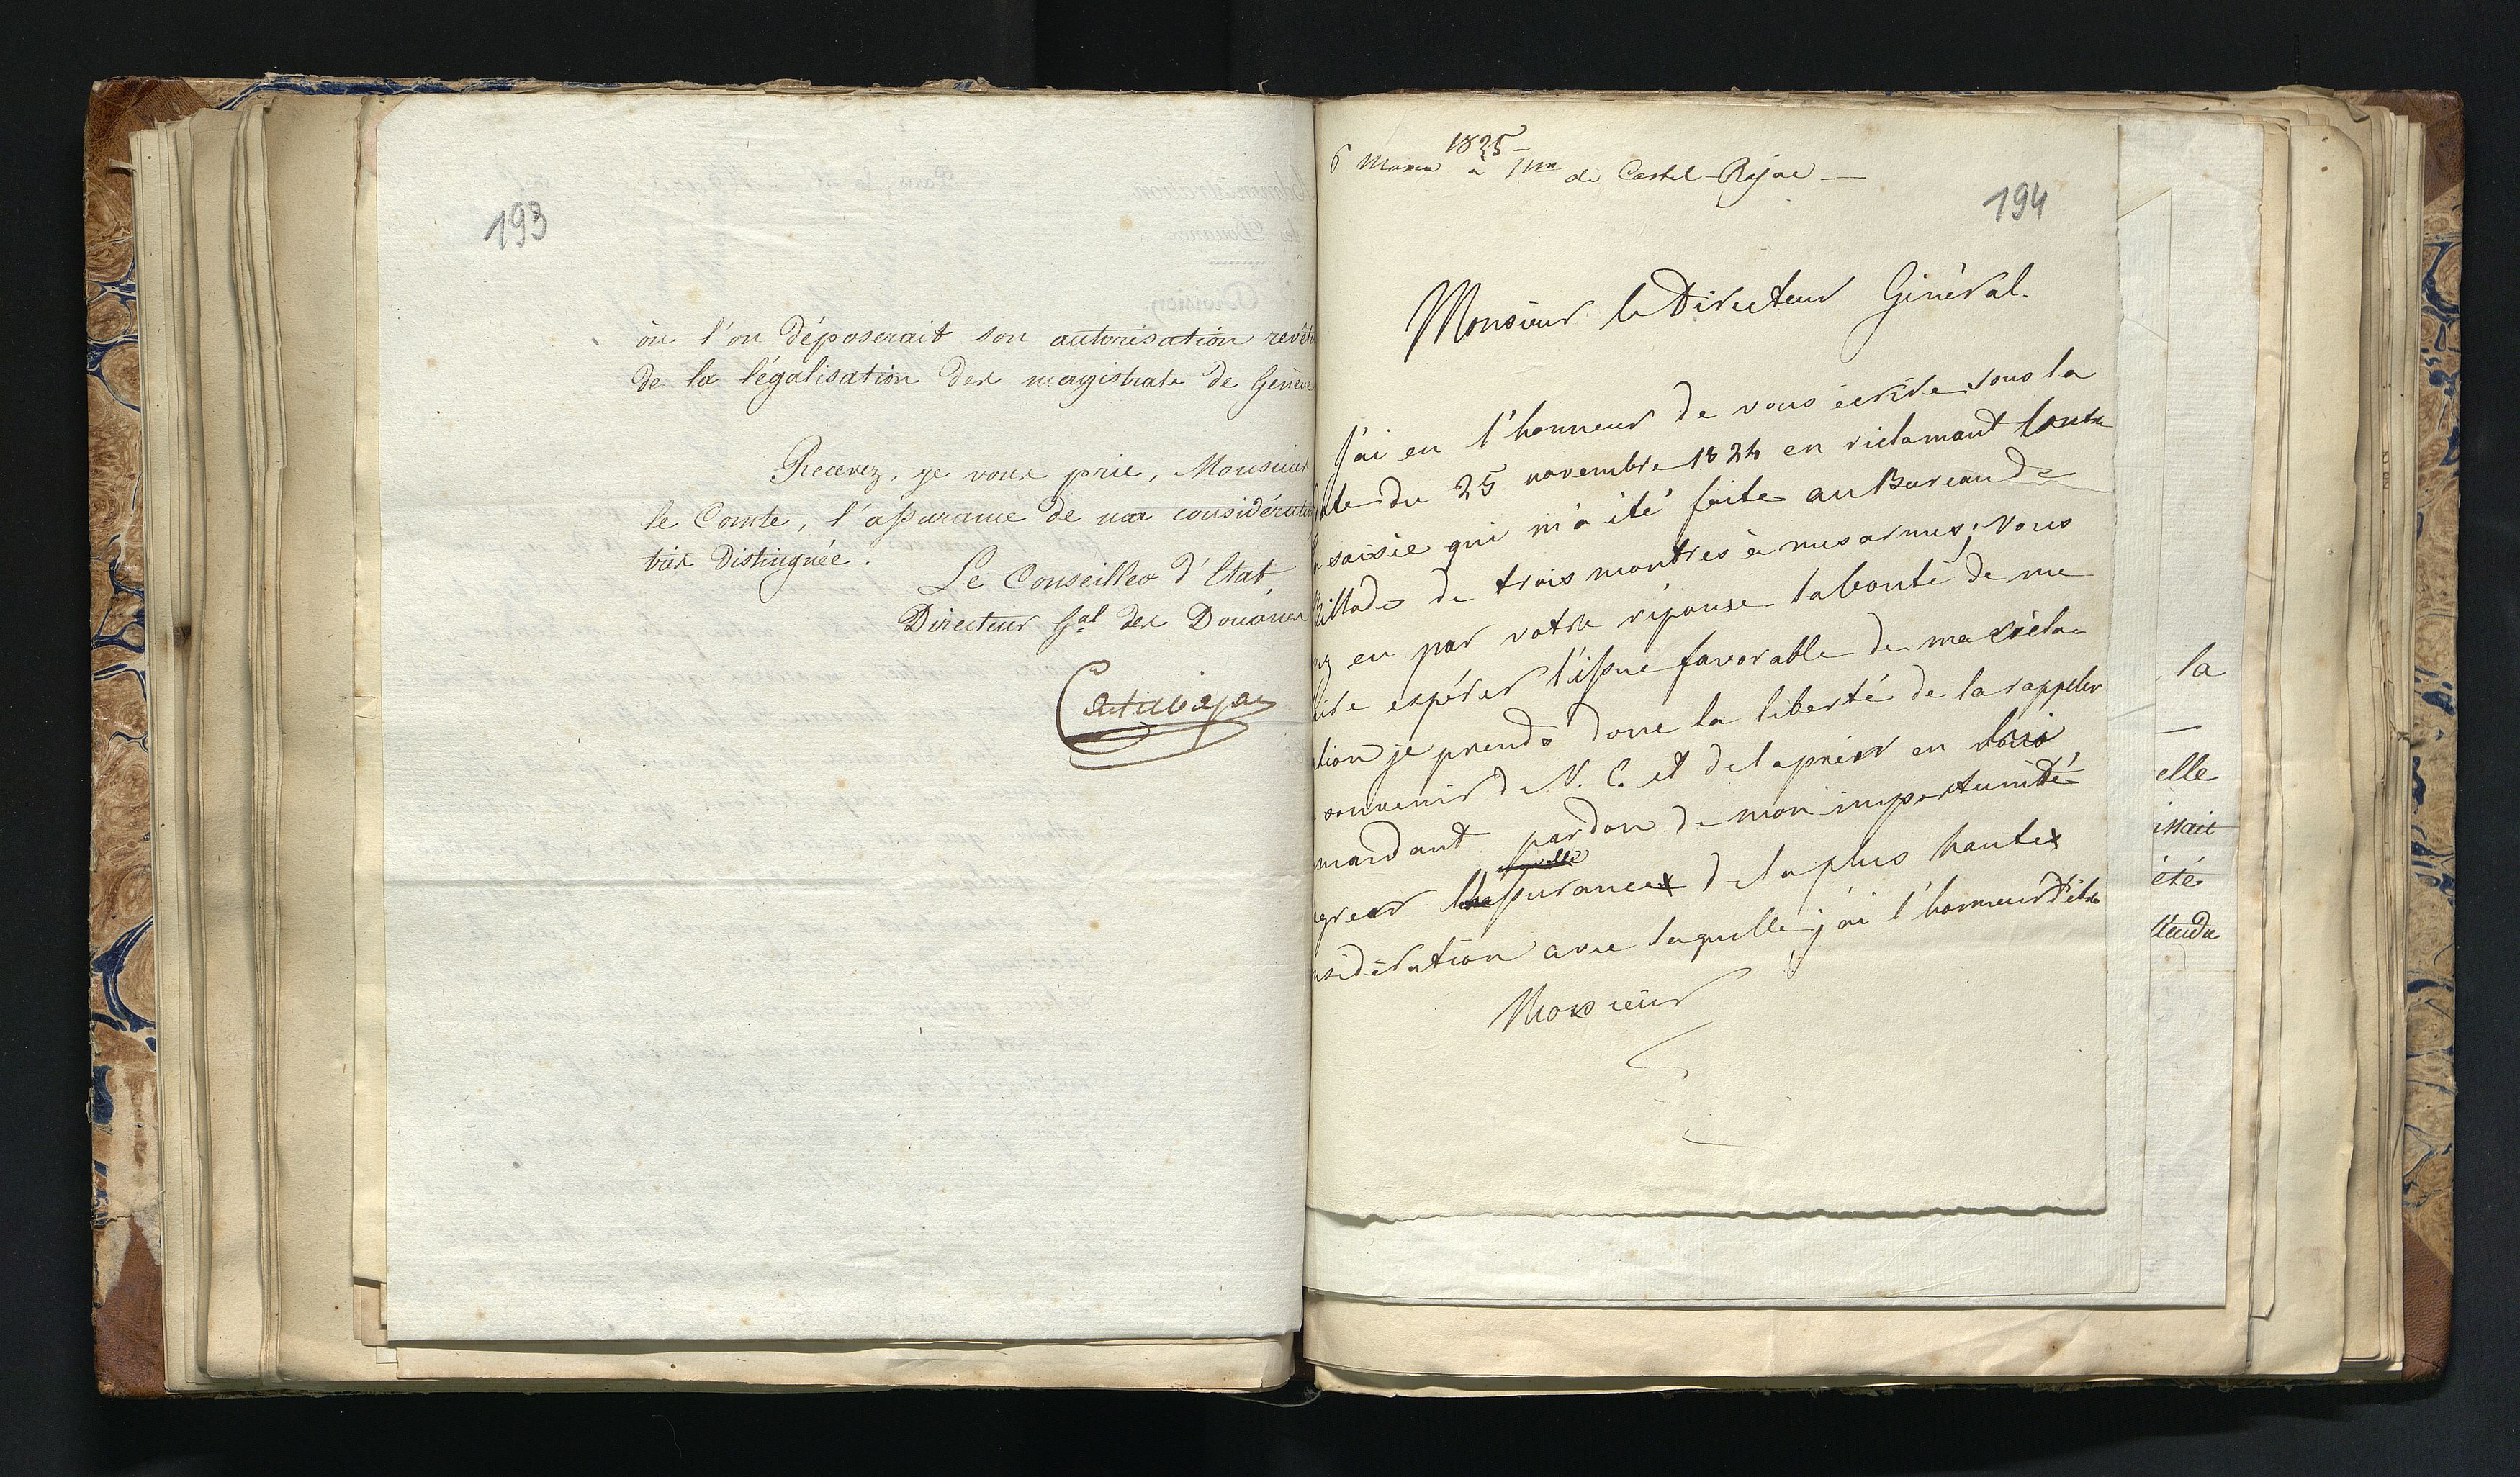 193
où l'on déposerait son autorisation revêt
de la légalisation des magistrats de Genève
Recevez, je vous prie, Monsieur
le Comte, l'assurance de ma considérati
très distinguée.
Le Conseiller d'Etat,
Directeur Gal des Douanes
Castelbajac
194
1825
6 Mars à Mr de Castel-Bajac
Monsieur le Directeur Général.
J'ai eu l'honneur de vous écrire sous la
date du 25 novembre 1824 en réclamant contre
la saisie qui m'a été faite au Bureau de
de trois montres à mes armes; vous
en par votre réponse la bonté de me
espérer l'issue favorable de ma récla-
tion je prends donc la liberté de la rappeler
souvenir de V. E. et de la prier en
mandant pardon de mon importunité
agréer l'assurance de la plus haute
nsidération avec laquelle j'ai l'honneur d'être
Monsieur
la
elle
issait
été
ttendu